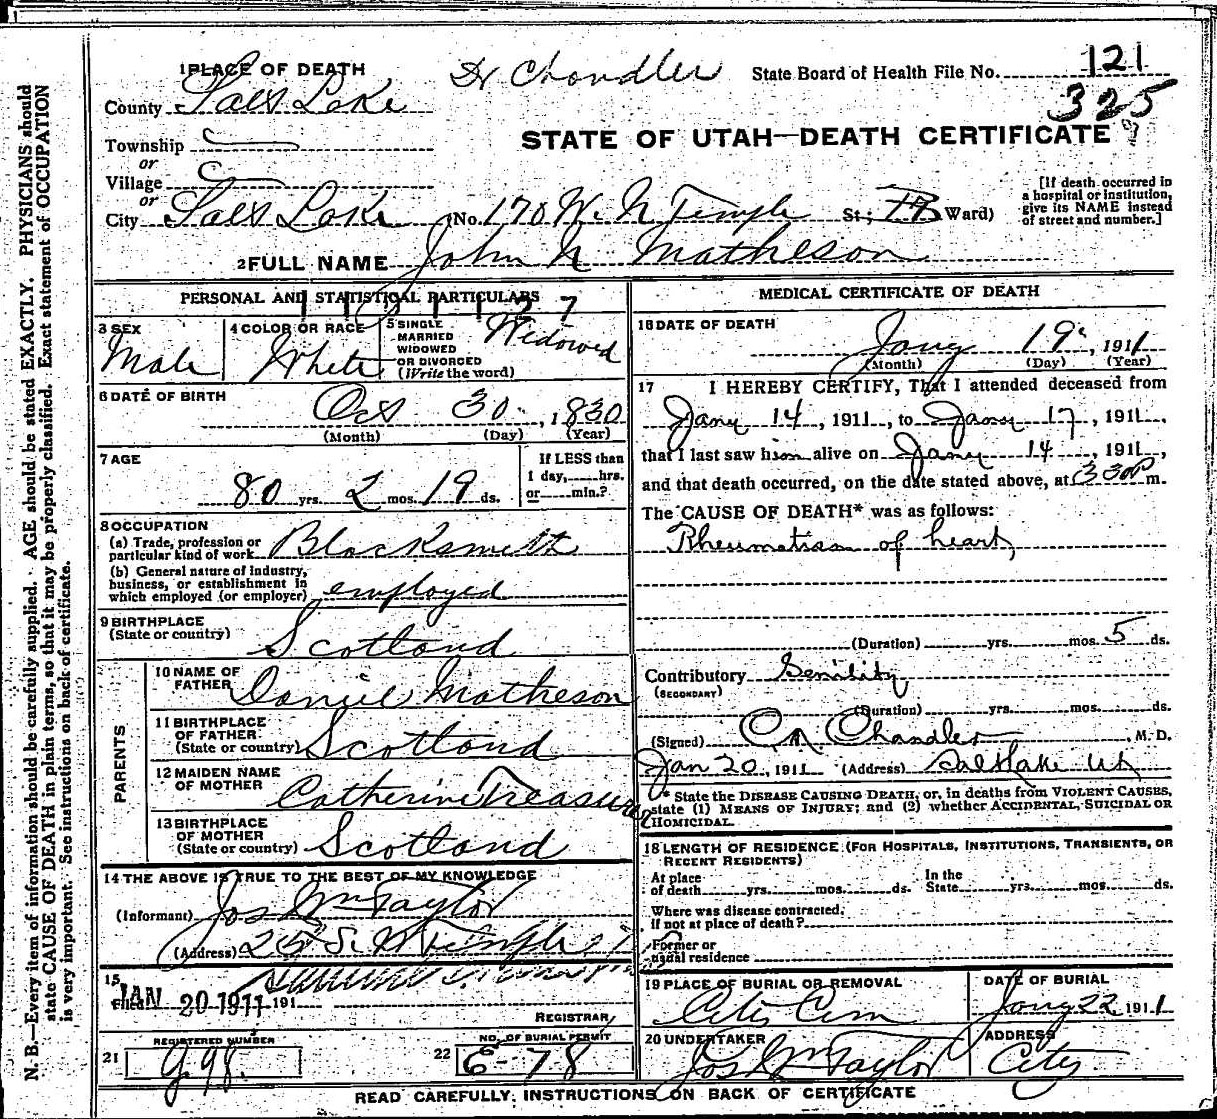 1 PLACE OF DEATH
Dr Chandler
State Board of Health File No. 121
325
County Salt Lake
STATE OF UTAH—DEATH CERTIFICATE
Township
or
Village
or
City Salt Lake (No. 170 W. N Temple St; Ward)
[If death occurred in a hospital or institution, give its NAME instead of street and number.]
2 FULL NAME John N Matheson
PERSONAL AND STATISTICAL PARTICULARS
3 SEX Male
4 COLOR OR RACE White
5 SINGLE MARRIED WIDOWED OR DIVORCED (Write the word) Widowed
6 DATE OF BIRTH Oct 30, 1830
(Month) (Day) (Year)
7 AGE
If LESS than 1 day, hrs. or min.?
80 yrs. 2 mos. 19 ds.
8 OCCUPATION
(a) Trade, profession or particular kind of work Blacksmith
(b) General nature of industry, business, or establishment in which employed (or employer) employed
9 BIRTHPLACE
(State or country) Scotland
PARENTS
10 NAME OF FATHER Daniel Matheson
11 BIRTHPLACE OF FATHER (State or country) Scotland
12 MAIDEN NAME OF MOTHER Catherine Treasurer
13 BIRTHPLACE OF MOTHER (State or country) Scotland
14 THE ABOVE IS TRUE TO THE BEST OF MY KNOWLEDGE
(Informant) Jos Wm Taylor
(Address) 25 S. W Temple
15
Filed JAN 20 1911 191
REGISTRAR
REGISTERED NUMBER
21 G 98
NO. OF BURIAL PERMIT
22 E-78
MEDICAL CERTIFICATE OF DEATH
16 DATE OF DEATH
Jany 19, 1911
(Month) (Day) (Year)
17 I HEREBY CERTIFY, That I attended deceased from
Jany 14, 1911, to Jany 17, 1911,
that I last saw him alive on Jany 14, 1911,
and that death occurred, on the date stated above, at 330P m.
The CAUSE OF DEATH* was as follows:
Rheumatism of heart
(Duration) yrs. mos. 5 ds.
Contributory Senility
(SECONDARY)
(Duration) yrs. mos. ds.
(Signed) Chandler, M. D.
Jan 20, 1911 (Address) Salt Lake Ut
* State the DISEASE CAUSING DEATH, or, in deaths from VIOLENT CAUSES,
state (1) MEANS OF INJURY; and (2) whether ACCIDENTAL, SUICIDAL OR
HOMICIDAL.
18 LENGTH OF RESIDENCE (FOR HOSPITALS, INSTITUTIONS, TRANSIENTS, OR
RECENT RESIDENTS)
At place of death yrs. mos. ds. In the State yrs. mos. ds.
Where was disease contracted,
if not at place of death?
Former or
usual residence
19 PLACE OF BURIAL OR REMOVAL City Cem
DATE OF BURIAL Jany 22, 1911
20 UNDERTAKER Jos Wm Taylor
ADDRESS City
READ CAREFULLY: INSTRUCTIONS ON BACK OF CERTIFICATE
N. B.—Every item of information should be carefully supplied. AGE should be stated EXACTLY. PHYSICIANS should
state CAUSE OF DEATH in plain terms, so that it may be properly classified. Exact statement of OCCUPATION
is very important. See instructions on back of certificate.